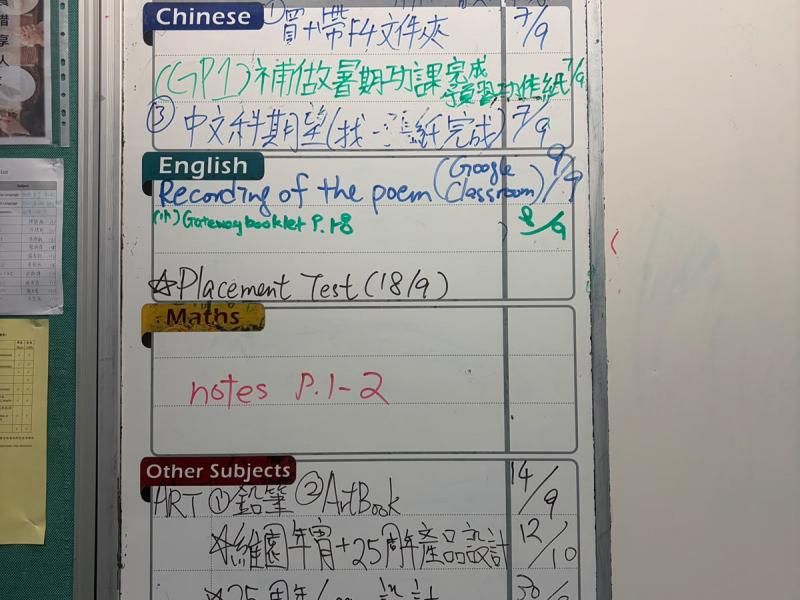 Chinese
① 買+帶F4文件夾 7/9
(GP1)補做暑期功課完成 7/9
③ 中文科期望(找一張紙完成) 7/9
English
Recording of the poem (Google Classroom) 9/9
(小) Gateway booklet P.1-8 8/9
☆Placement Test (18/9)
Maths
notes P.1-2
Other Subjects
ART ①鉛筆 ②ArtBook 14/9
☆維園年宵+25周年產品設計 12/10
☆25周年 設計 30